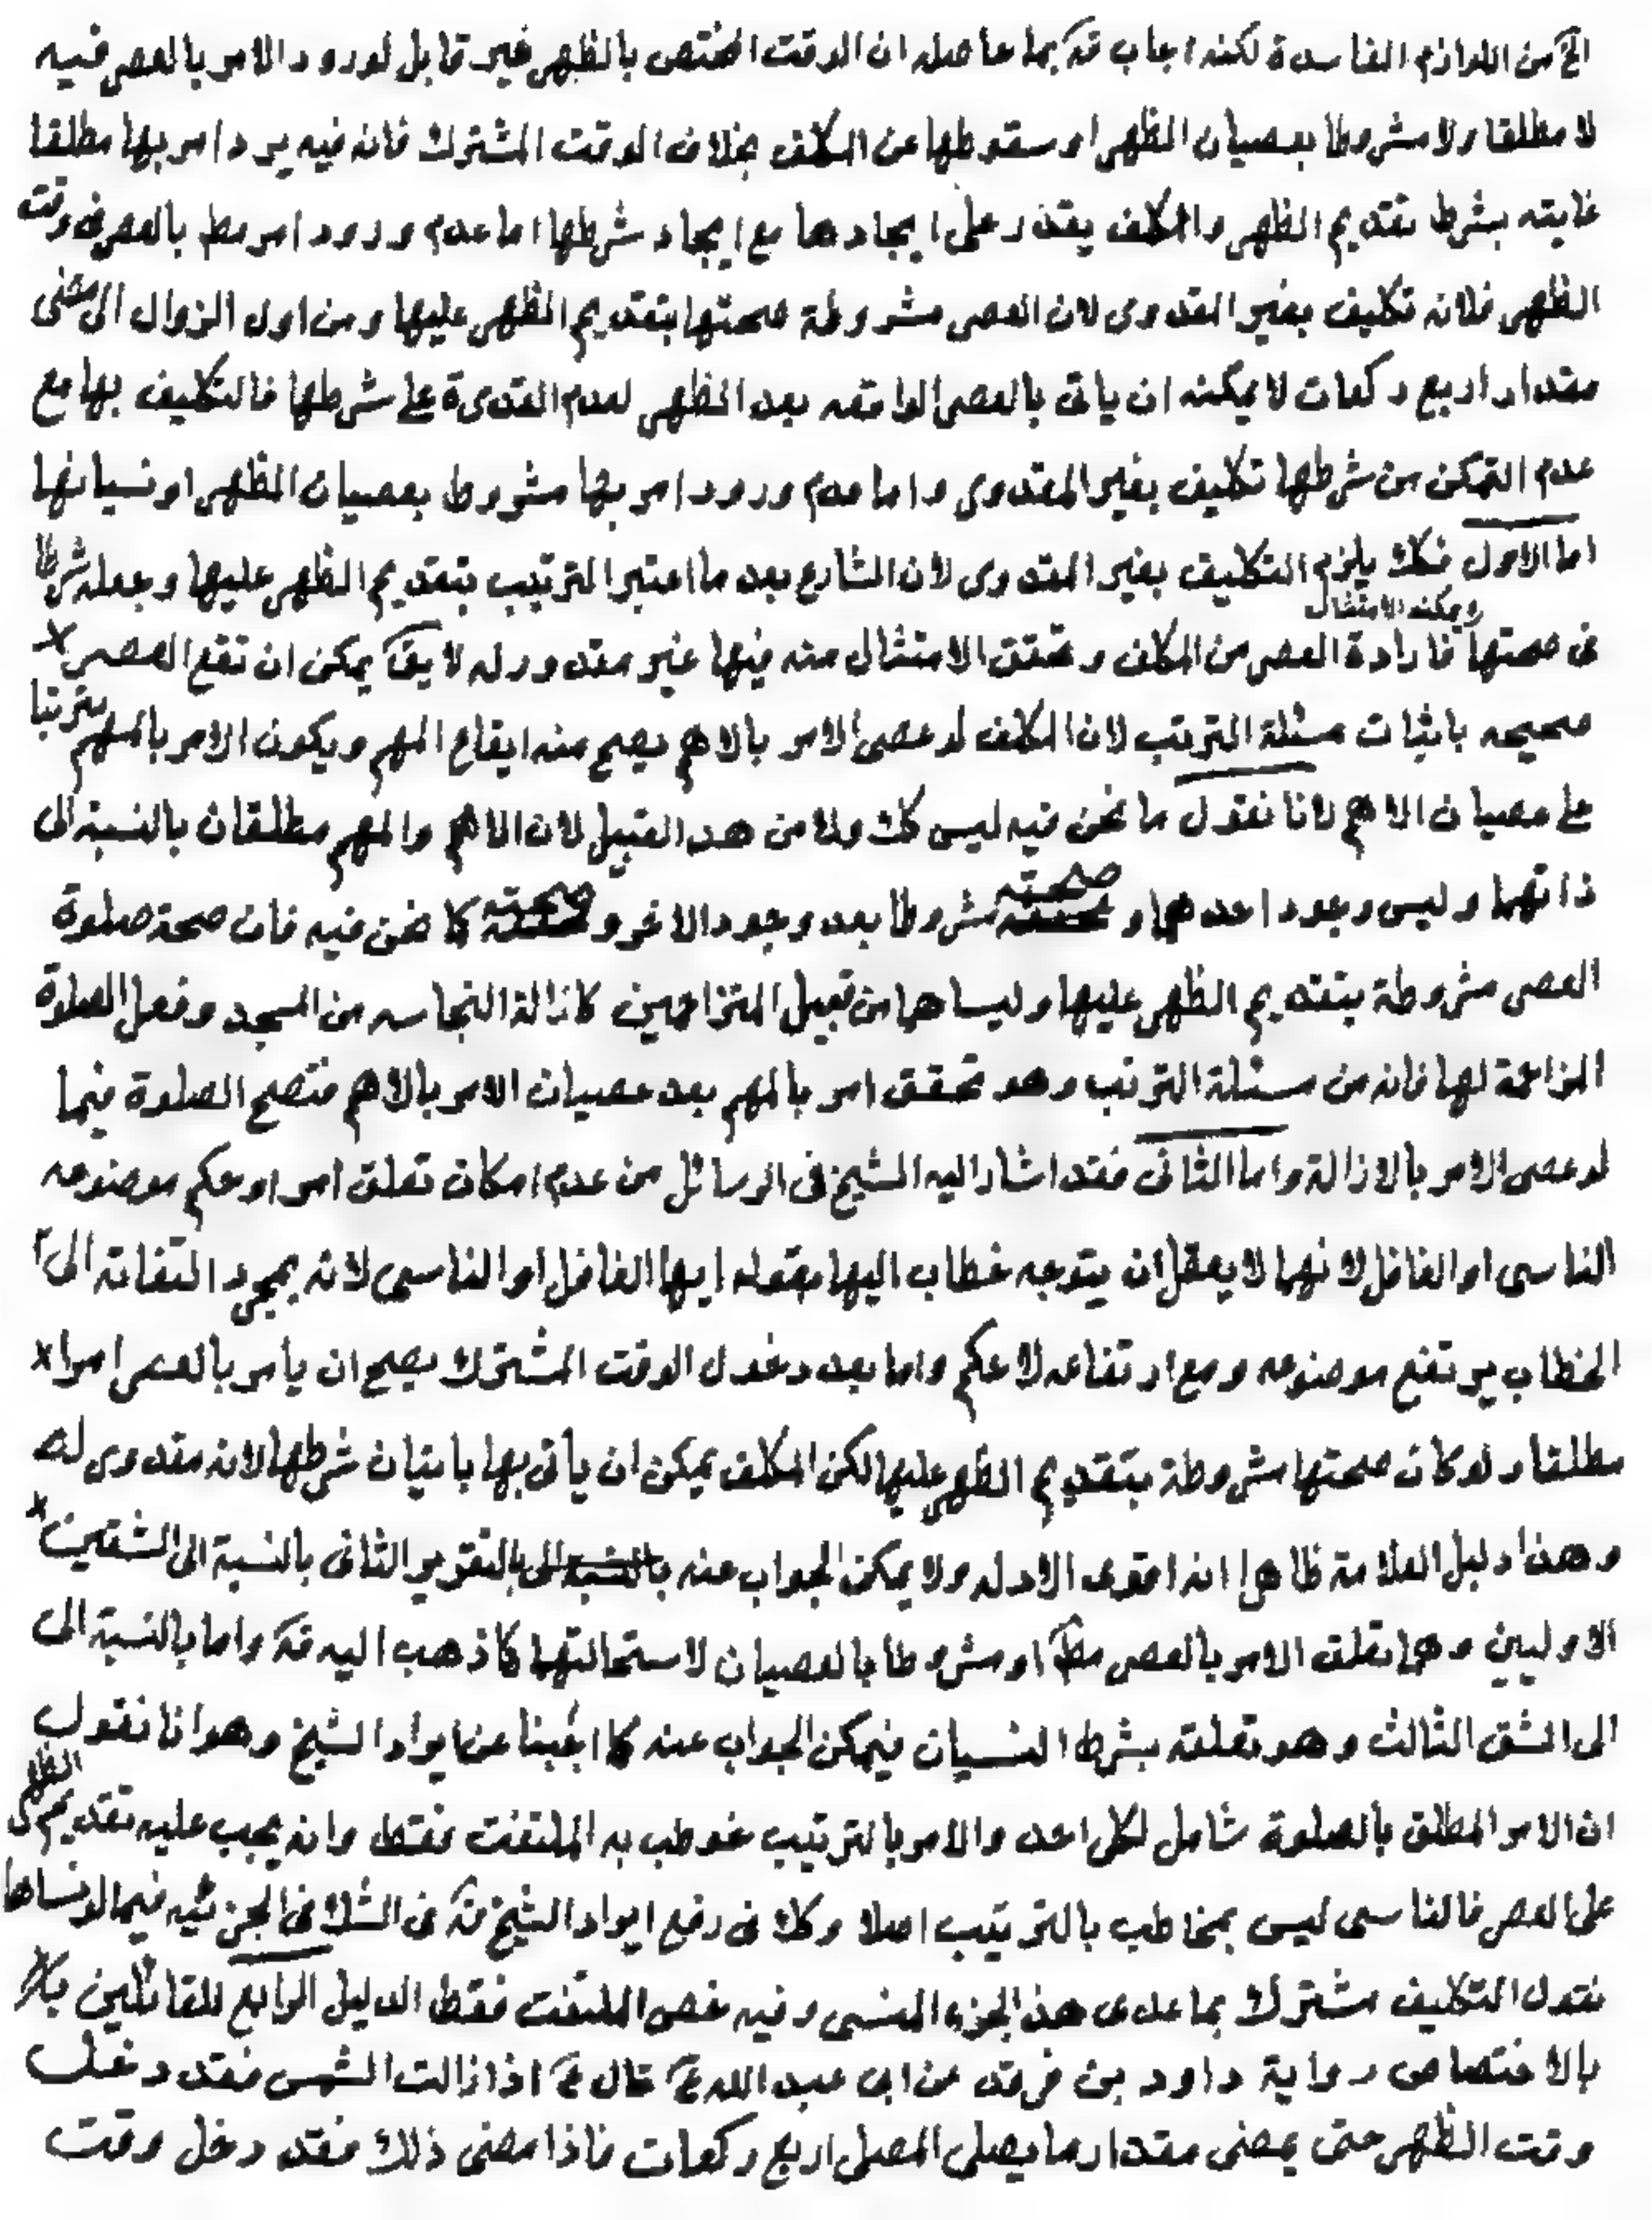 الخ من اللوازم الفاسدة لكنه اجاب قده بما حاصله ان الوقت المختص بالظهر غير قابل لورود الامر بالعصر فيه
لا مطلقا ولا مشروطا بعصيان الظهر او سقوطها عن المكلف بخلاف الوقت المشترك فانه فيه يرد امر بها مطلقا
غايته بشرط تقديم الظهر والمكلف يقدر على ايجادها مع ايجاد شرطها اما عدم ورود امر مط بالعصر في وقت
الظهر فلانه تكليف بغير المقدور لان العصر مشروطة صحتها بتقديم الظهر عليها ومن اول الزوال الى مضى
مقدار اربع ركعات لا يمكنه ان ياتى بالعصر الواقعه بعد الظهر لعدم القدرة على شرطها فالتكليف بها مع
عدم التمكن من شرطها تكليف بغير المقدور واما عدم ورود امر بها مشروط بعصيان الظهر او نسيانها
اما الاول فكك يلزم التكليف بغير المقدور لان الشارع بعد ما اعتبر الترتيب بتقديم الظهر عليها وجعله شرطا
ويمكنه الامتثال
فى صحتها فارادة العصر من المكلف وتحقق الامتثال منه فيها غير مقدور له لا يقا يمكن ان تقع العصر
صحيحه باثبات مسئلة الترتب لان المكلف لو عصى الامر بالاهم يصح منه ايقاع المهم ويكون الامر بالمهم مترتبا
على عصيان الاهم لانا نقول ما نحن فيه ليس كك ولا من هذا القبيل لان الاهم والمهم مطلقان بالنسبة الى
ذاتهما وليس وجود احدهما وصحته مشروطا بعد وجود الاخر وصحته كما نحن فيه فان صحة صلوة
العصر مشروطة بتقديم الظهر عليها وليسا هما من قبيل المتزاحمين كازالة النجاسه من المسجد وفعل الصلوة
المزاحمة لها فانه من مسئلة الترتب وهو تحقق امر بالمهم بعد عصيان الامر بالاهم فتصح الصلوة فيما
لو عصى الامر بالازالة واما الثانى فقد اشار اليه الشيخ فى الرسائل من عدم امكان تعلق امر او حكم موضوعه
الناسى او الغافل لانهما لا يعقل ان يتوجه خطاب اليهما بقوله ايها الغافل او الناسى لانه بمجرد التفاته الى
الخطاب يرتفع موضوعه ومع ارتفاعه لا حكم واما بعد دخول الوقت المشترك يصح ان يأمر بالعصر امرا
مطلقا ولو كان صحتها مشروطة بتقديم الظهر عليها لكن المكلف يمكن ان يأتى بها باتيان شرطها لانه مقدور له
وهذا دليل العلامة ظاهرا انه اقوى الادله ولا يمكن الجواب عنه بالنسبة الى بالتقرير الثانى بالنسبة الى الشقين
الاوليين وهما تعلق الامر بالعصر مط او مشروطا بالعصيان لاستحالتهما كما ذهب اليه قده واما بالنسبة الى
الى الشق الثالث وهو تعلقه بشرط النسيان فيمكن الجواب عنه كما اجبنا عن ايراد الشيخ وهو انا نقول
ان الامر المطلق بالصلوة شامل لكل احد والامر بالترتيب خوطب به الملتفت فقط وانه يجب عليه تقديم الظهر
على العصر فالناسى ليس بمخاطب بالترتيب اصلا وكك فى رفع ايراد الشيخ قده فى الشك فى الجزئيه فيما لو نساها
نقول التكليف مشترك بما عدى هذا الجزء المنسى وفيه خص الملتفت فقط الدليل الرابع للقائلين
بالاختصاص رواية داود بن فرقد عن ابى عبد الله ع قال ع اذا زالت الشمس فقد دخل
وقت الظهر حتى يمضى مقدار ما يصلى المصلى اربع ركعات فاذا مضى ذلك فقد دخل وقت